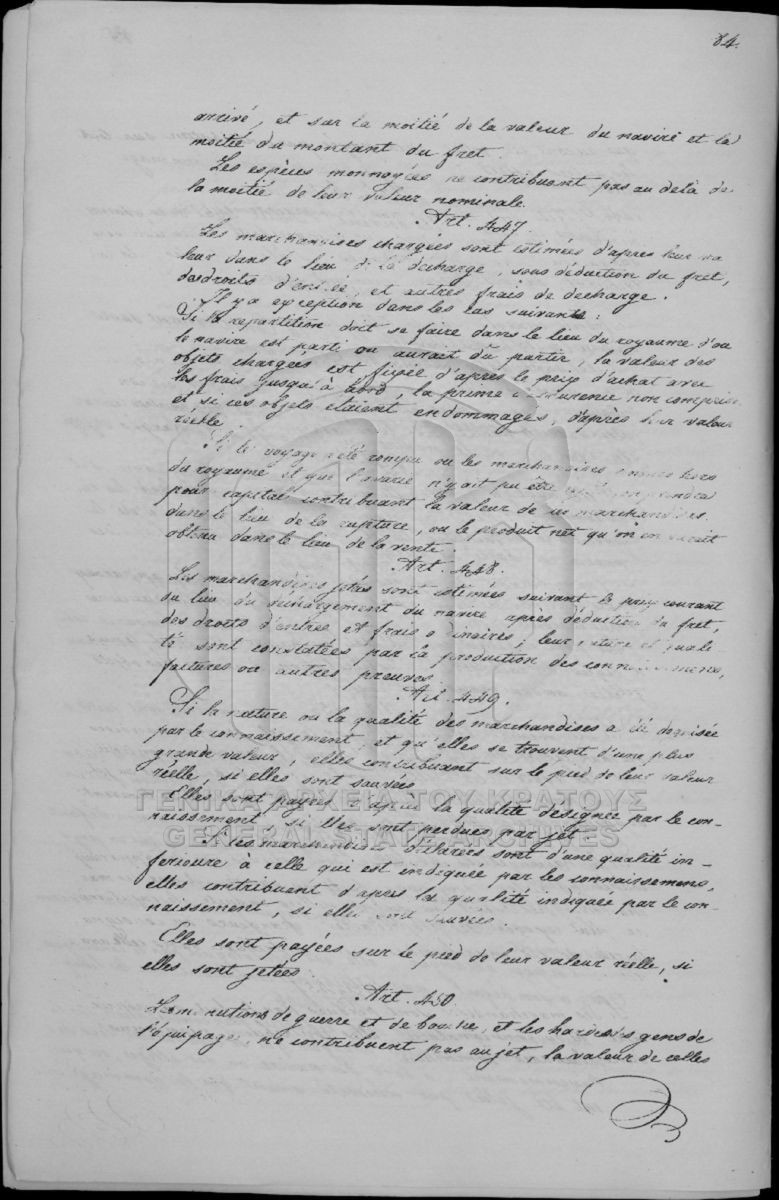 84.
arrivé, et sur la moitié de la valeur du navire et la
moitié du montant du fret.
Les espèces monnoyées ne contribuent pas au delà de
la moitié de leur valeur nominale.
Art. 447.
Les marchandises chargées sont estimées d'après leur va
leur dans le lieu de la decharge, sous déduction du fret,
des droits d'entrée, et autres frais de decharge.
Il y a exception dans les cas suivants:
Si la repartition doit se faire dans le lieu du royaume d'ou
le navire est parti ou aurait dû partir, la valeur des
objets chargées est fixée d'après le prix d'achat avec
les frais jusqu'à bord, la prime d'assurence non comprise
et si ces objets etaient endommagés, d'après leur valeur
réelle.
Si le voyage a été rompu ou les marchandises hors
du royaume et que l'avarie n'y ait pu être
pour capital contribuant la valeur de ces marchandises,
dans le lieu de la rupture, ou le produit net qu'on en aurait
obtenu dans le lieu de la vente.
Art. 448.
Les marchandises jetées sont estimées suivant le prix courant
du lieu du déchargement du navire après déduction du fret,
des droits d'entrée et frais ordinaires; leur nature et quali
té sont constatées par la production des connaissemens,
factures ou autres preuves.
Art. 449.
Si la nature ou la qualité des marchandises a été deguisée
par le connaissement, et qu'elles se trouvent d'une plus
grande valeur, elles contribuent sur le pied de leur valeur
réelle, si elles sont sauvées.
Elles sont payées d'après la qualité designée par le con-
naissement si elles sont perdues par jet.
ΓΕΝΙΚΑ ΑΡΧΕΙΑ ΤΟΥ ΚΡΑΤΟΥΣ
GENERAL STATE ARCHIVES
Si les marchandises déclarées sont d'une qualité in-
ferieure à celle qui est indiquée par les connaissemens,
elles contribuent d'après la qualité indiquée par le con-
naissement, si elles sont sauvées.
Elles sont payées sur le pied de leur valeur réelle, si
elles sont jetées.
Art. 450
Les munitions de guerre et de bouche, et les hardes des gens de
l'équipage, ne contribuent pas au jet, la valeur de celles